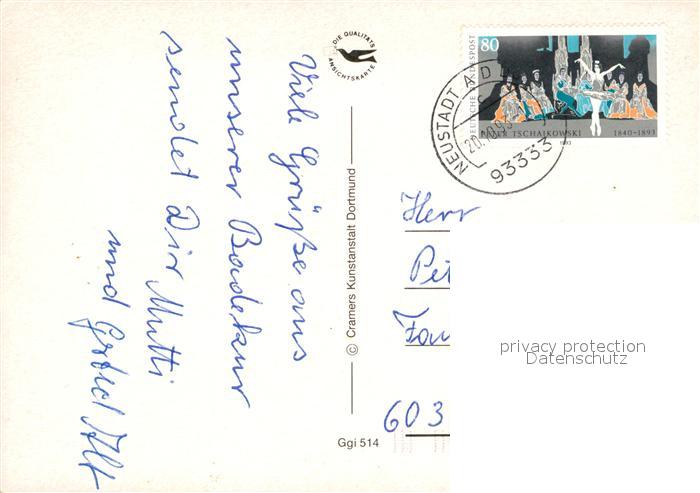 Viele Grüße aus
unserer Badekur
sendet Dir Mutti
und
DIE QUALITÄTS
ANSICHTSKARTE
© Cramers Kunstanstalt Dortmund
Ggi 514
80
DEUTSCHE BUNDESPOST
PETER TSCHAIKOWSKI 1840-1893
1993
NEUSTADT A D D
20.10.93
93333
Herr
603
privacy protection
Datenschutz